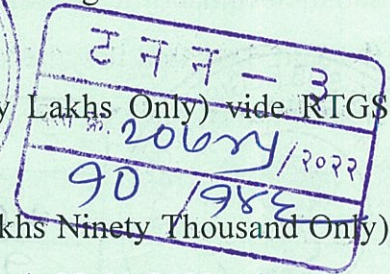 ट न न - ३
y Lakhs Only) vide RTGS
क्र. / २०२२
१० / १४६
khs Ninety Thousand Only)